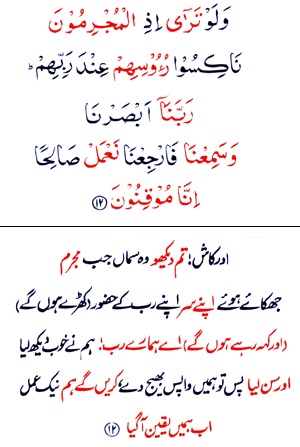 وَلَوْ تَرٰۤی اِذِ الْمُجْرِمُوْنَ
نَاكِسُوْا رُءُوْسِهِمْ عِنْدَ رَبِّهِمْ ؕ
رَبَّنَاۤ اَبْصَرْنَا
وَسَمِعْنَا فَارْجِعْنَا نَعْمَلْ صَالِحًا
اِنَّا مُوْقِنُوْنَ ﴿۱۲﴾
اور کاش! تم دیکھو وہ سماں جب مجرم
جھکائے ہوئے اپنے سر اپنے رب کے حضور (کھڑے ہوں گے)
(اور کہہ رہے ہوں گے) اے ہمارے رب! ہم نے خوب دیکھ لیا
اور سن لیا پس تو ہمیں واپس بھیج دے، کریں گے ہم نیک عمل
اب ہمیں یقین آ گیا ﴿۱۲﴾